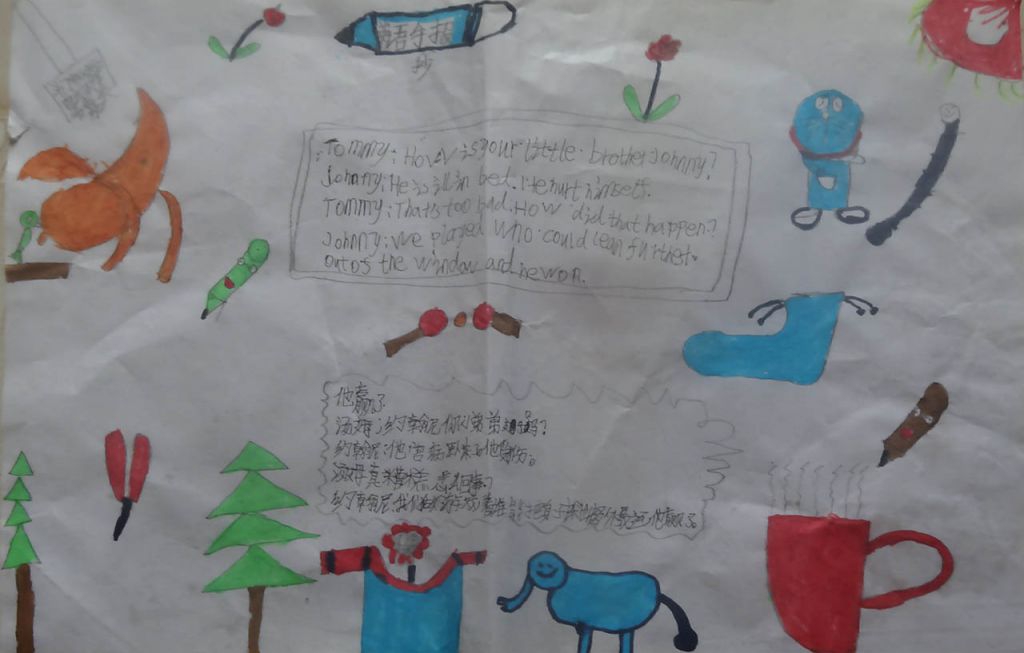 英语手抄
抄
Tommy: How is your little brother Johnny?
Johnny: He is ill in bed. He hurt himself.
Tommy: Thats too bad. How did that happen?
Johnny: We played who could lean furthest
out of the window and he won.
他赢了
汤姆：约翰尼你小弟弟好吗？
约翰尼：他害病卧床了他受伤。
汤姆真糟糕
约翰尼我们 他赢了